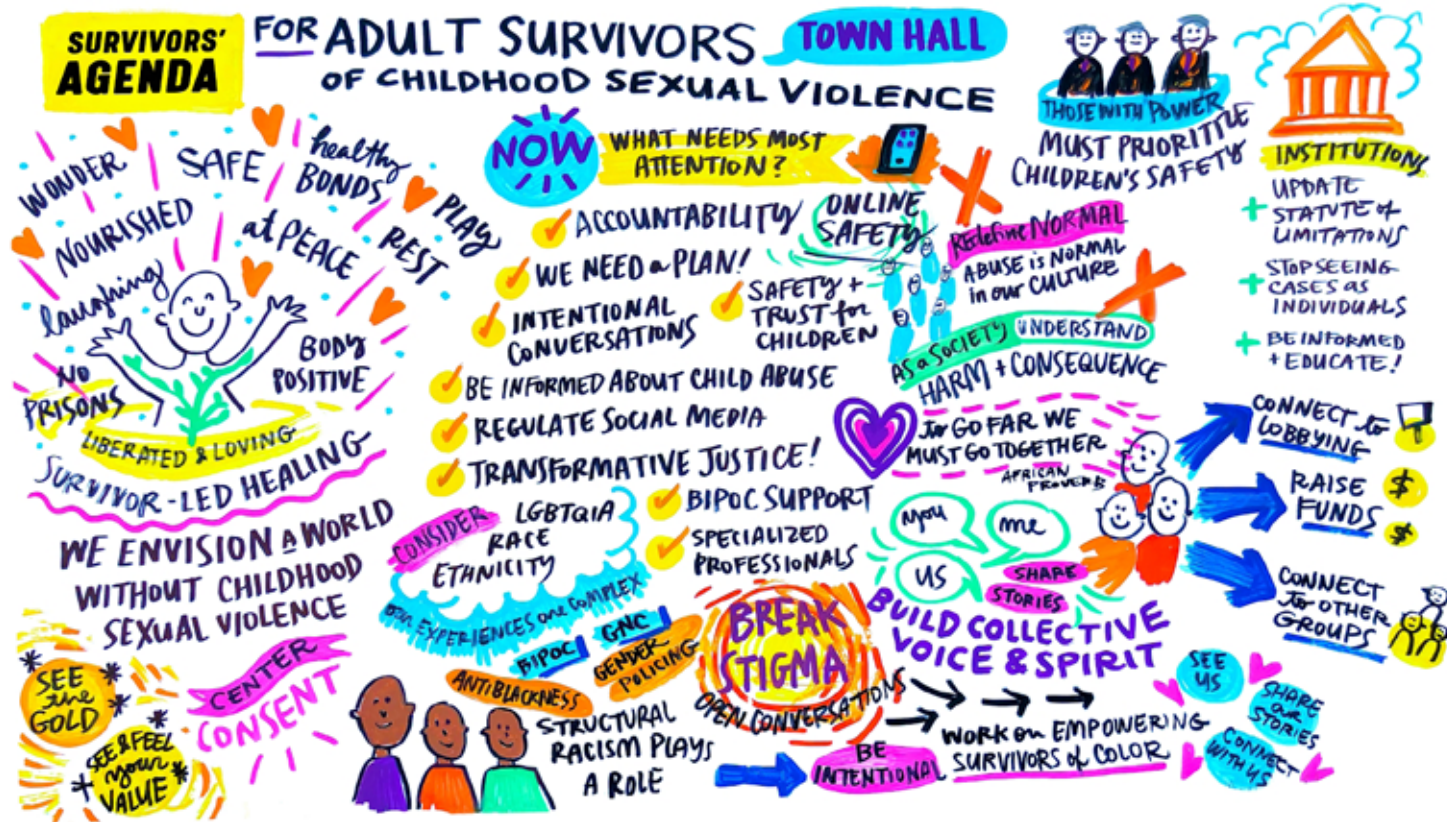 SURVIVORS'
AGENDA
FOR ADULT SURVIVORS
OF CHILDHOOD SEXUAL VIOLENCE
TOWN HALL
WONDER
SAFE
healthy
BONDS
PLAY
NOURISHED
at PEACE
REST
laughing
BODY
POSITIVE
NO
PRISONS
LIBERATED & LOVING
SURVIVOR-LED HEALING
WE ENVISION A WORLD
WITHOUT CHILDHOOD
SEXUAL VIOLENCE
SEE
the
GOLD
SEE & FEEL
your
VALUE
CENTER
CONSENT
NOW
WHAT NEEDS MOST
ATTENTION?
ACCOUNTABILITY
WE NEED a PLAN!
INTENTIONAL
CONVERSATIONS
SAFETY +
TRUST for
CHILDREN
BE INFORMED ABOUT CHILD ABUSE
REGULATE SOCIAL MEDIA
TRANSFORMATIVE JUSTICE!
BIPOC SUPPORT
SPECIALIZED
PROFESSIONALS
CONSIDER
LGBTQIA
RACE
ETHNICITY
OUR EXPERIENCES are COMPLEX
BIPOC
GNC
ANTIBLACKNESS
GENDER
POLICING
STRUCTURAL
RACISM PLAYS
A ROLE
ONLINE
SAFETY
REdefine NORMAL
ABUSE is NORMAL
in our CULTURE
AS a SOCIETY UNDERSTAND
HARM + CONSEQUENCE
THOSE WITH POWER
MUST PRIORITTLE
CHILDREN'S SAFETY
INSTITUTIONS
+ UPDATE
STATUTE of
LIMITATIONS
+ STOP SEEING
CASES as
INDIVIDUALS
+ BE INFORMED
+ EDUCATE!
To GO FAR WE
MUST GO TOGETHER
AFRICAN
PROVERB
you
me
US
SHARE
STORIES
BUILD COLLECTIVE
VOICE & SPIRIT
CONNECT to
LOBBYING
RAISE
FUNDS
$
$
CONNECT
to OTHER
GROUPS
BREAK
STIGMA
OPEN CONVERSATIONS
BE
INTENTIONAL
WORK on EMPOWERING
SURVIVORS of COLOR
SEE
US
SHARE
our
STORIES
CONNECT
WITH US